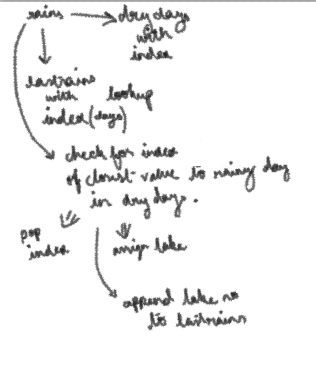 rains
dry days
with
index
lastrains
with lookup
index (days)
check for index
of closest value to rainy day
in dry days.
pop
index
assign lake
append lake no
to lastrains